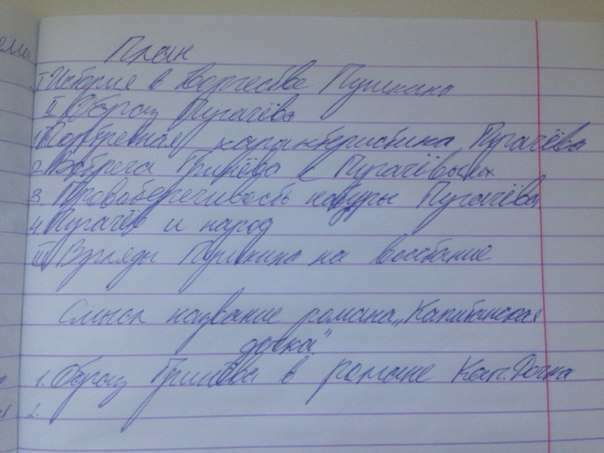 План
I История в творчестве Пушкина
II Образ Пугачёва
1. Портретная характеристика Пугачёва
2. Встреча Гринёва с Пугачёвым
3. Противоречивость натуры Пугачёва
4. Пугачёв и народ
III Взгляды Пушкина на восстание
Смысл название романа „Капитанская
дочка"
1. Образ Гринёва в романе Кап. Дочка
2.